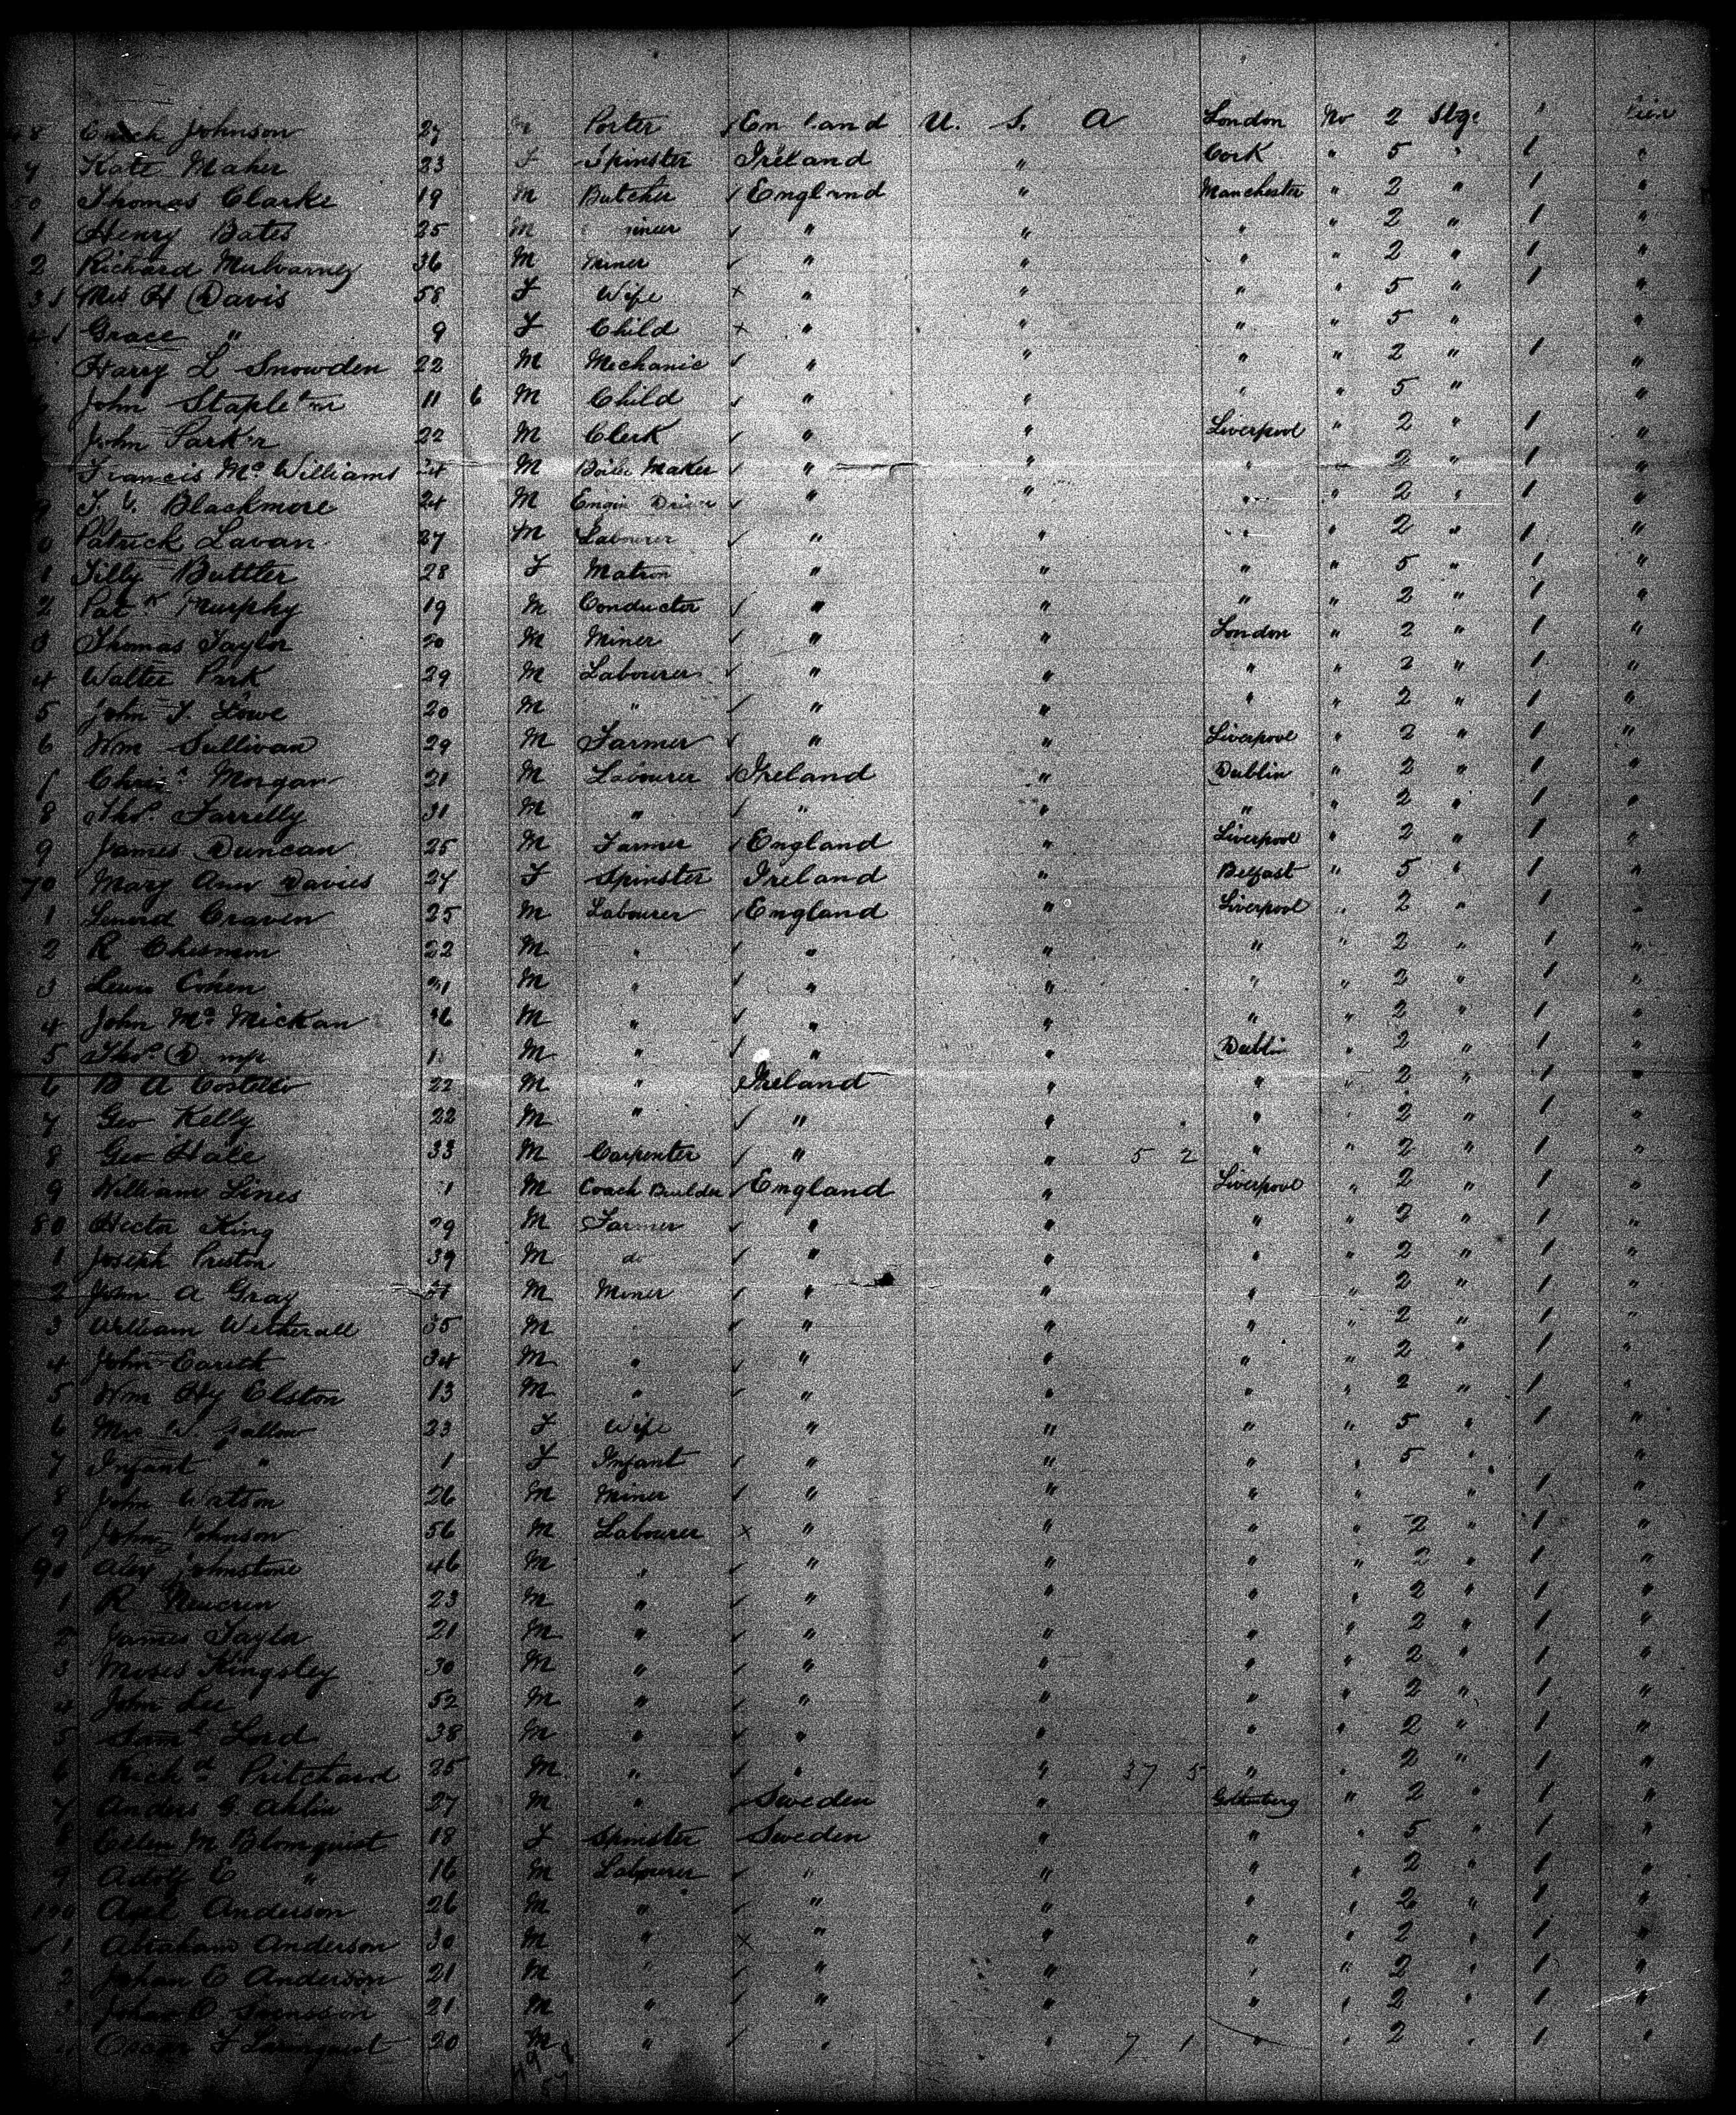 48 Enoch Johnson 27 Porter England U. S. A London No 2 Stge 1
9 Kate Maher 23 F Spinster Ireland " Cork " 5 " 1 "
50 Thomas Clarke 19 M Butcher ✓ England " Manchester " 2 " 1 "
1 Henry Bates 25 M ✓ " " " " 2 " 1 "
2 Richard Mulvarney 36 M Miner ✓ " " " " 2 " 1 "
3 Mrs H Davis 58 F Wife × " " " " 5 " 1 "
4 Grace " 9 F Child × " " " " 5 " "
Harry L Snowden 22 M Mechanic ✓ " " " " 2 " 1 "
John Stapleton 11 6 M Child ✓ " " " " 5 " "
John Parker 22 M Clerk ✓ " " Liverpool " 2 " 1 "
Francis Mc Williams 24 M Boiler Maker ✓ " " " " 2 " 1 "
9 Blackmore 24 M Engin Driver ✓ " " " " 2 " 1 "
0 Patrick Lavan 27 M Labourer ✓ " " " " 2 " 1 "
1 Tilly Buttler 28 F Matron " " " " 5 " 1 "
2 Patk Murphy 19 M Conducter ✓ " " " " 2 " 1 "
3 Thomas Taylor 20 M Miner ✓ " " London " 2 " 1 "
4 Walter Park 29 M Labourer ✓ " " " " 2 " 1 "
5 John T. Lowe 20 M " ✓ " " " " 2 " 1 "
6 Wm Sullivan 29 M Farmer ✓ " " Liverpool " 2 " 1 "
7 Chris. Morgan 21 M Labourer ✓ Ireland " Dublin " 2 " 1 "
8 Thos. Farrelly 31 M " ✓ " " " " 2 " 1 "
9 James Duncan 25 M Farmer ✓ England " Liverpool " 2 " 1 "
70 Mary Ann Davies 27 F Spinster Ireland " Belfast " 5 " 1 "
1 Lenord Craven 25 M Labourer ✓ England " Liverpool " 2 " 1 "
2 R Chesmon 22 M " ✓ " " " " 2 " 1 "
3 Lewis Cohen M " ✓ " " " " 2 " 1 "
4 John Mc Mickan M " ✓ " " " " 2 " 1 "
5 Thos. M " ✓ " " Dublin " 2 " 1 "
6 B A Costello 22 M " ✓ Ireland " " " 2 " 1 "
7 Geo Kelly 22 M " ✓ " " " " 2 " 1 "
8 Geo Hale 33 M Carpenter ✓ " " 5 2 " " 2 " 1 "
9 William Lines M Coach Builder ✓ England " Liverpool " 2 " 1 "
80 Hector King 29 M Farmer ✓ " " " " 2 " 1 "
1 Joseph Preston 39 M do ✓ " " " " 2 " 1 "
2 John A Gray M Miner ✓ " " " " 2 " 1 "
3 William Wetherall 35 M " " " " " 2 " 1 "
4 John 34 M " ✓ " " " " 2 " 1 "
5 Wm Hy Elston 13 M " ✓ " " " " 2 " 1 "
6 Mrs W. 23 F Wife " " " " 5 " 1 "
7 Infant " 1 F Infant ✓ " " " " 5 " "
8 John Watson 26 M Miner ✓ " " " " " 1 "
9 John Johnson 56 M Labourer × " " " " 2 " 1 "
90 Alex Johnstone 46 M " ✓ " " " " 2 " 1 "
1 R 23 M " ✓ " " " " 2 " 1 "
2 James Taylor 21 M " ✓ " " " " 2 " 1 "
3 Moses Kingsley 30 M " ✓ " " " " 2 " 1 "
4 John Lee 52 M " ✓ " " " " 2 " 1 "
5 Saml Lord 38 M " ✓ " " " " 2 " 1 "
6 Richd Pritchard 25 M " ✓ " " 37 5 " " 2 " 1 "
7 Anders G. Ahlin 27 M " ✓ Sweden " Gothenberg " 2 " 1 "
8 Ellen M Blomquist 18 F Spinster Sweden " " " 5 " 1 "
9 Adolf E " 16 M Labourer ✓ " " " " 2 " 1 "
100 Axel Anderson 26 M " ✓ " " " " 2 " 1 "
1 Abraham Anderson 30 M " × " " " " 2 " 1 "
2 Johan E Anderson 21 M " ✓ " " " " 2 " 1 "
3 Johan O Svensson 21 M " ✓ " " " " 2 " 1 "
Oscar F 20 M " ✓ " " 7 1 " " 2 " 1 "